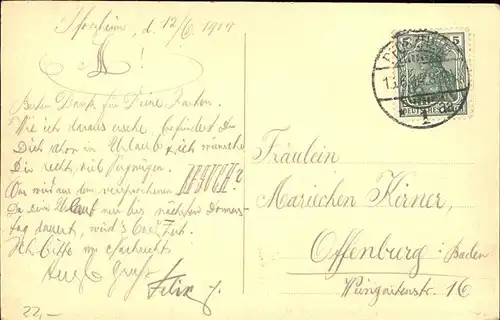 Pforzheim, d. 12/6 19
L. M!
Besten Dank für Deine Karten.
Wie ich daraus ersehe, befindest Du
Dich schon in Urlaub & ich wünsche
Dir recht viel Vergnügen.
Was wird aus dem versprochenen BESUCH?
Da Dein Urlaub nur bis nächsten Donners-
tag dauert, wird's bald Zeit.
Ich bitte um Nachricht
Gruß
Felix J.
22,-
5
PFORZHEIM
DEUTSCHES
Fräulein
Mariechen Kirner,
Offenburg i/Baden
Weingartenstr. 16